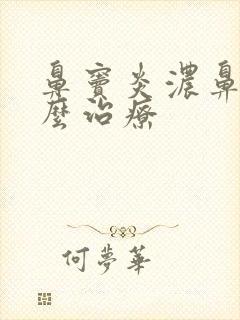 鼻窦炎濃鼻
麼治療
何夢華